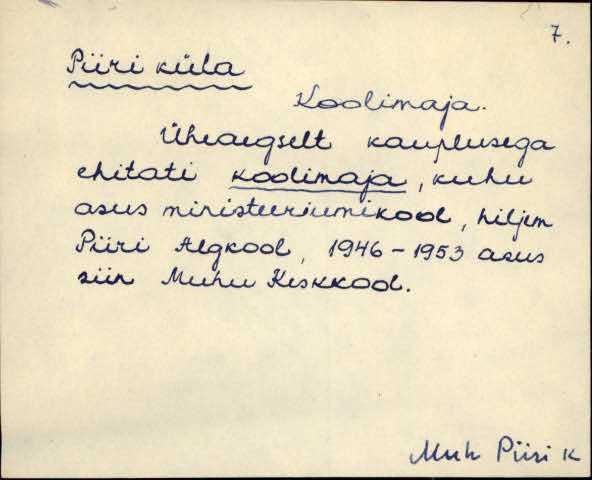 7.
Piiri küla
Koolimaja.
Üheaegselt kauplusega
ehitati koolimaja, kuhu
asus ministeeriumikool, hiljem
Piiri Algkool, 1946-1953 asus
siin Muhu Keskkool.
Muh Piiri k